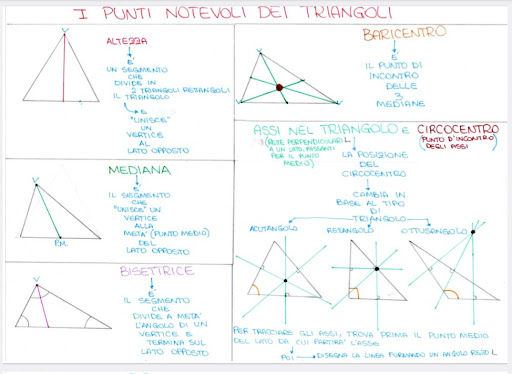 I PUNTI NOTEVOLI DEI TRIANGOLI
V
ALTEZZA
È
UN SEGMENTO
CHE
DIVIDE IN
2 TRIANGOLI RETANGOLI
IL TRIANGOLO
E
"UNISCE"
UN
VERTICE
AL
LATO OPPOSTO
V
P.M.
MEDIANA
È
IL SEGMENTO
CHE
"UNISCE" UN
VERTICE
ALLA
METÀ (PUNTO MEDIO)
DEL
LATO OPPOSTO
V
BISETTRICE
È
IL SEGMENTO
CHE
DIVIDE A METÀ
L'ANGOLO DI UN
VERTICE E
TERMINA SUL
LATO OPPOSTO
V
BARICENTRO
È
IL PUNTO DI
INCONTRO
DELLE
3
MEDIANE
ASSI NEL TRIANGOLO e CIRCOCENTRO
(RETTE PERPENDICOLARI
A UN LATO, PASSANTI
PER IL PUNTO
MEDIO)
(PUNTO D'INCONTRO
DEGLI ASSI)
LA POSIZIONE
DEL
CIRCOCENTRO
CAMBIA IN
BASE AL TIPO
DI
TRIANGOLO
ACUTANGOLO
RETANGOLO
OTTUSANGOLO
PER TRACCIARE GLI ASSI, TROVA PRIMA IL PUNTO MEDIO
DEL LATO DA CUI PARTIRÀ L'ASSE
POI
DISEGNA LA LINEA FORMANDO UN ANGOLO RETTO